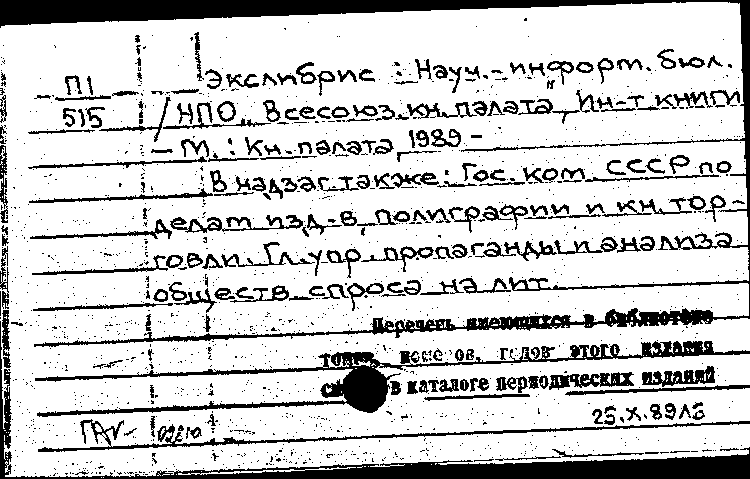 П1 Экслибрис : Науч.-информ. бюл.
515 / НПО „Всесоюз. кн. палата“, Ин-т книги
– М. : Кн. палата, 1989 –
В надзаг. также: Гос. ком. СССР по
делам изд-в, полиграфии и кн. тор-
говли. Гл. упр. пропаганды и анализа
обществ. спроса на лит.
Перечень имеющихся в библиотеке
томов, номеров, годов этого издания
в каталоге периодических изданий
25.X.89